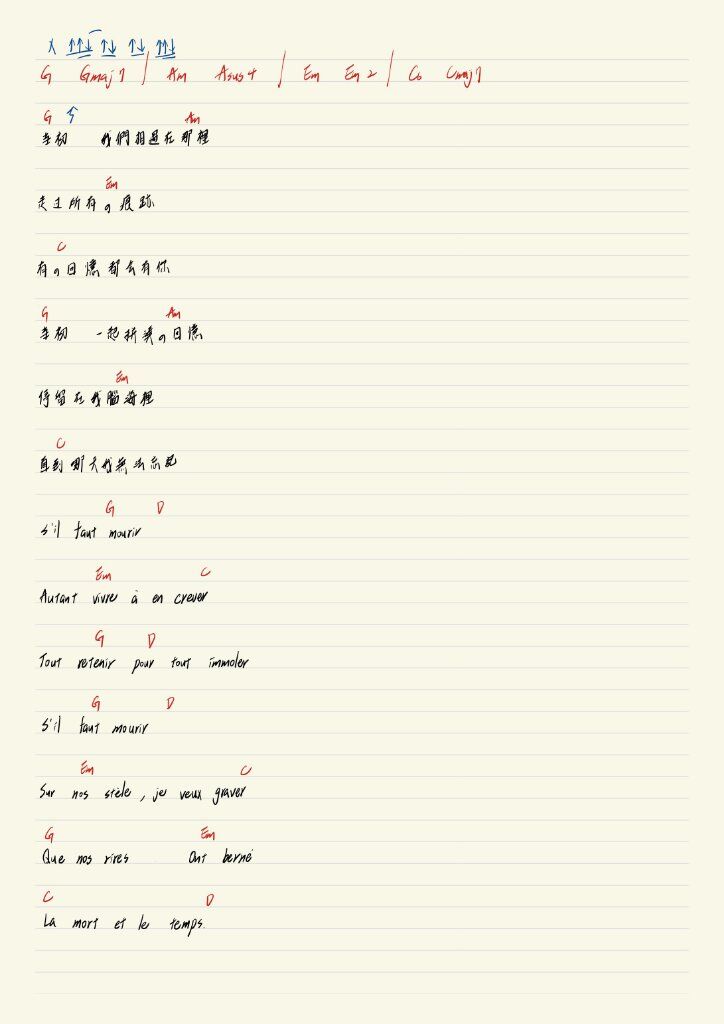 X ↑↑↓ ↑↓ ↑↓ ↑↑↓
G Gmaj7 | Am Asus4 | Em Em2 | C Cmaj7
G Am
當初 我們相遇在那裡
Em
走走所有の痕跡
C
有の回憶都会有你
G Am
當初 一起拆築の回憶
Em
停留在我腦海裡
C
直到哪天我無法忘記
G D
s'il faut mourir
Em C
Autant vivre à en crever
G D
Tout retenir pour tout immoler
G D
S'il faut mourir
Em C
Sur nos stèle, je veux graver
G Em
Que nos rires Ont berné
C D
La mort et le temps.